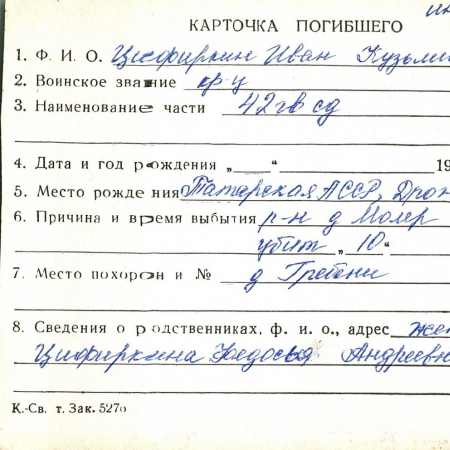 ин
КАРТОЧКА ПОГИБШЕГО
1. Ф. И. О. Цифиркин Иван Кузьми
2. Воинское звание кр-ц
3. Наименование части 42 гв сд
4. Дата и год рождения „ “ 19
5. Место рождения Татарская АССР, Дрож
6. Причина и время выбытия р-н д Моляр
убит „ 10 “
7. Место похорон и № д Гребени
8. Сведения о родственниках, ф. и. о., адрес жен
Цифиркина Федосья Андреевн
К.-Св. т. Зак. 527о